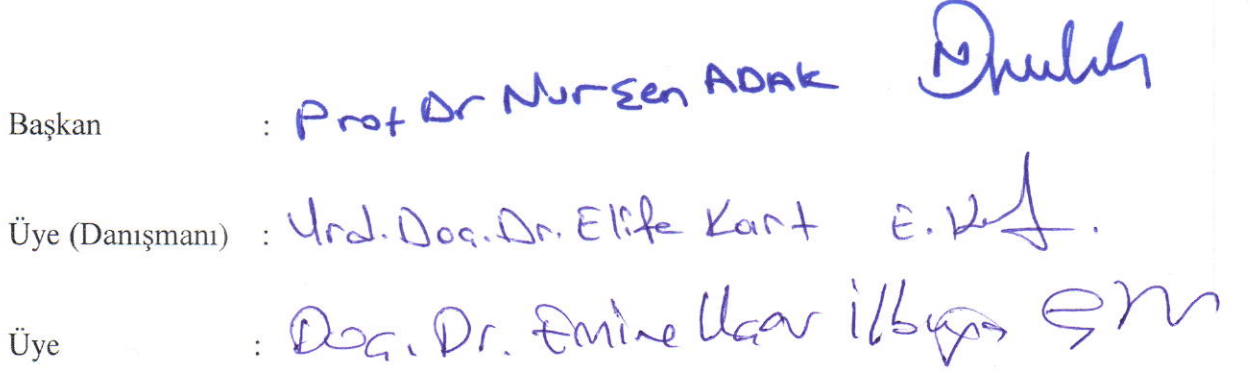 Başkan : Prof Dr Nurşen ADAK
Üye (Danışmanı) : Yrd. Doç. Dr. Elife Kart E. Kart.
Üye : Doç. Dr. Emine Uçar İlbuğa